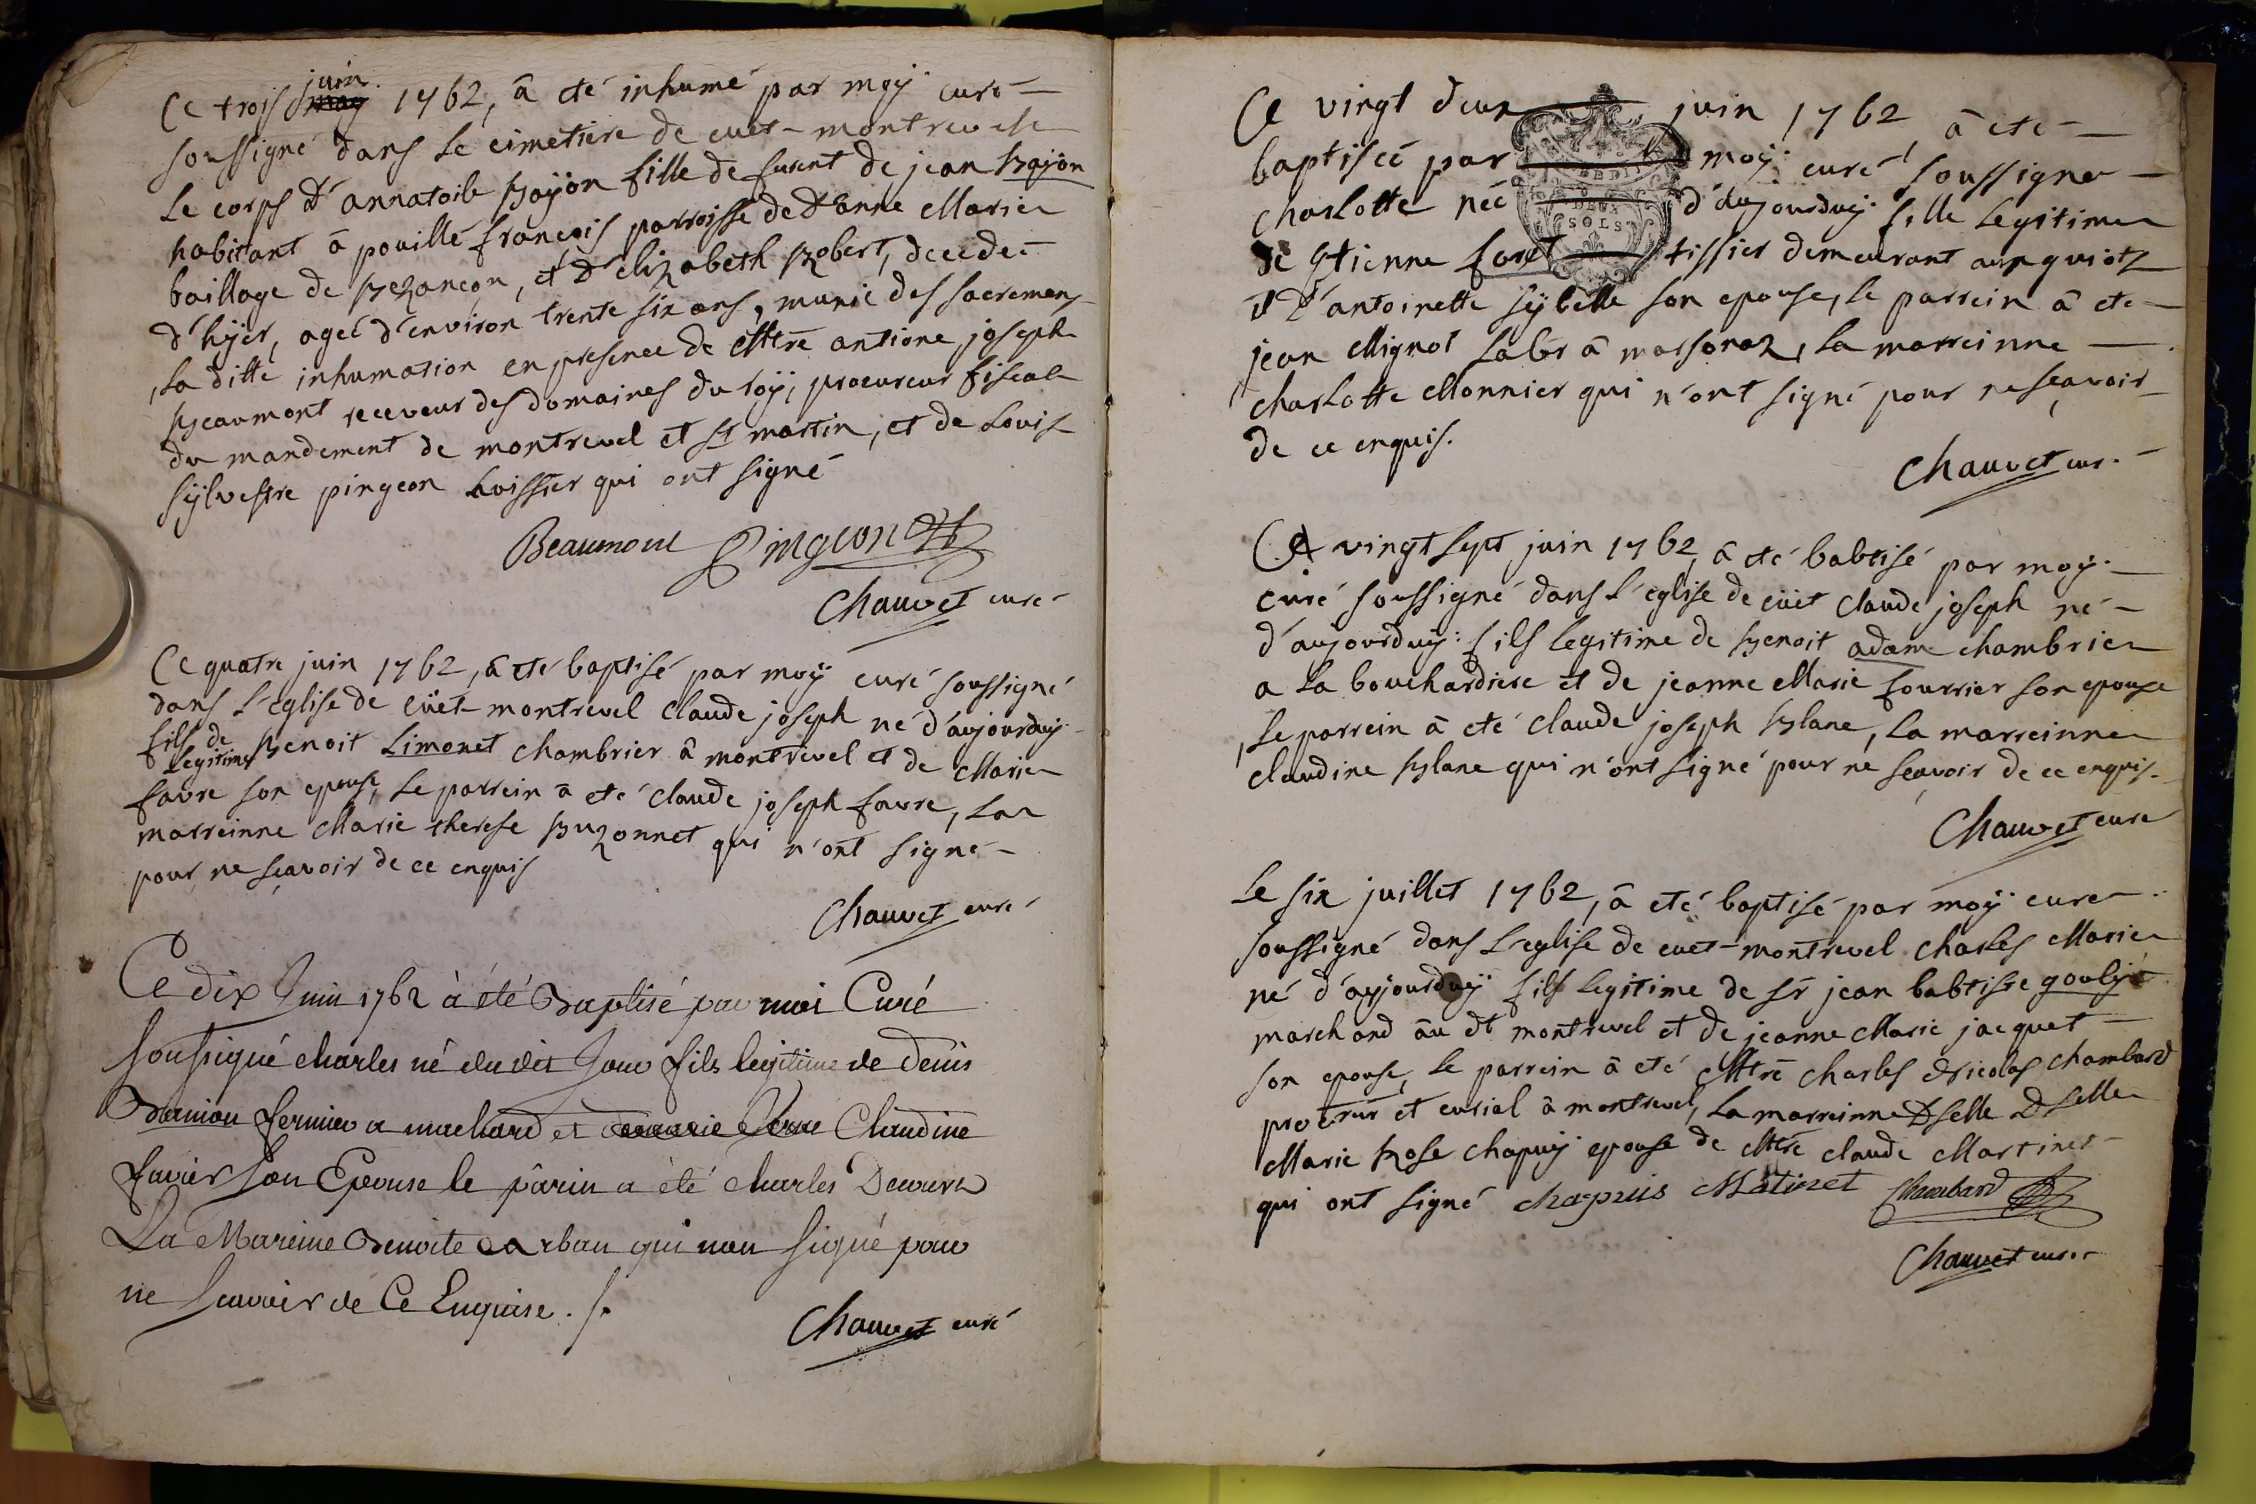 Ce trois ~~may~~ juin 1762, â eté inhumé par moÿ curé
soussigné dans le cimetiere de cuet-montrevel
le corps d'annatoile Bojon fille de furent de jean Bojon
habitant â pouillé françois parroisse de d'anne Marie
baillage de Bezançon, et d'elizabeth Robert, decedeé
d'hÿer, ageé d'environ trente six ans, munie des sacremens
, la ditte inhumation en presence de Mtre antione joseph
Beaumont receveur des domaines du roÿ, procureur fiscal
du mandement de montrevel et st martin, et de Louis
sÿlvestre pingeon huissier qui ont signé
Beaumont Pingeon
Chauvet curé
Ce quatre juin 1762, â eté baptisé par moÿ curé soussigné
dans l'eglise de cüet-montrevel claude joseph né d'aujourduÿ
fils legitime de Benoit Limonet chambrier â montrevel et de Marie
favre son epouse, le parrein â eté claude joseph favre, la
marreinne Marie therese Buzonnet qui n'ont signé
pour ne sçavoir de ce enquis
Chauvet curé
Ce dix Juin 1762 à été Baptisé par moi Curé
soussigné charles né du dit Jour fils legitime de denis
fermier a machard et Claudine
favier son Epouse le pârin a été charles
La Mareine Benoite qui non signé pour
ne scavoir de Ce Enquise.
Chauvet curé
Ce vingt deux juin 1762, â eté
baptiseé par moÿ curé soussigné
charlotte neé d'aujourduÿ fille legitime
DEUX
SOLS
de Etienne foret tissier demeurant aux guiotz
et d'antoinette sÿbelle son epouse, le parrein â eté
jean Mignot labr â marsonaz, la marreinne
charlotte Monnier qui n'ont signé pour ne sçavoir
de ce enquis.
Chauvet cur.
Ce vingt sept juin 1762, â eté babtisé par moÿ
curé soussigné dans l'eglise de cüet claude joseph né
d'aujourduÿ fils legitime de Benoit adam chambrier
a la bouchardiere et de jeanne Marie fourrier son epouse
, le parrein â eté claude joseph Blanc, la marreinne
claudine Blanc qui n'ont signé pour ne sçavoir de ce enquis.
Chauvet curé
Le six juillet 1762, â eté baptisé par moÿ curé
soussigné dans l'eglise de cuet-montrevel charles Marie
né d'aujourduÿ fils legitime de sr jean babtiste goulÿ
marchand au dt montrevel et de jeanne Marie jacquet
son epouse, le parrein â eté Mtre charles Nicolas chambard
procrur et curial â montrevel, la marreinne Dselle Dselle
Marie Rose chapuÿ epouse de Mtre claude Martinet
qui ont signé chapuis Matinet Chambard
Chauvet cur.